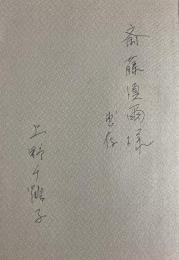 斎藤慎爾様
恵存
上野千鶴子